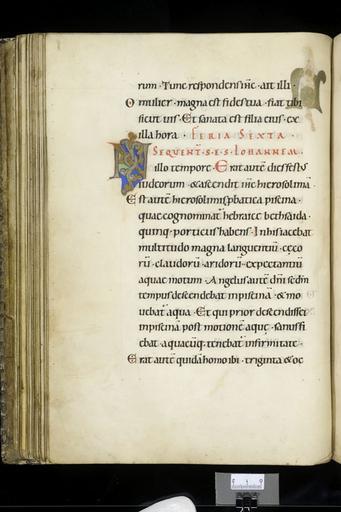 rum · Tunc respondens ihc · ait illi
O mulier · magna est fides tua · fiat tibi
sicut uis · Et sanata est filia eius · ex
illa hora · FERIA SEXTA ·
SEQUENT · S · E · S · IOHANNEM ·
IN illo tempore · Erat autē dies festus
iudeorum · & ascendit ihc hierosolimā
Est autē hierosolimis pbatica piscina ·
quae cognominat hebraice bethsaida ·
quinq · porticus habens · In his iacebat
multitudo magna languentiū · cęco
rū · claudorū · aridorū · expectantiū
aquae motum · Angelus autē dni scdm
tempus descendebat in piscinā · & mo
uebat aqua · Et qui prior descendisset
in piscinā post motionē aquę · sanus fi
ebat · a quacūq · tenebat infirmitate ·
Erat autē quidā homo ibi · triginta & oc